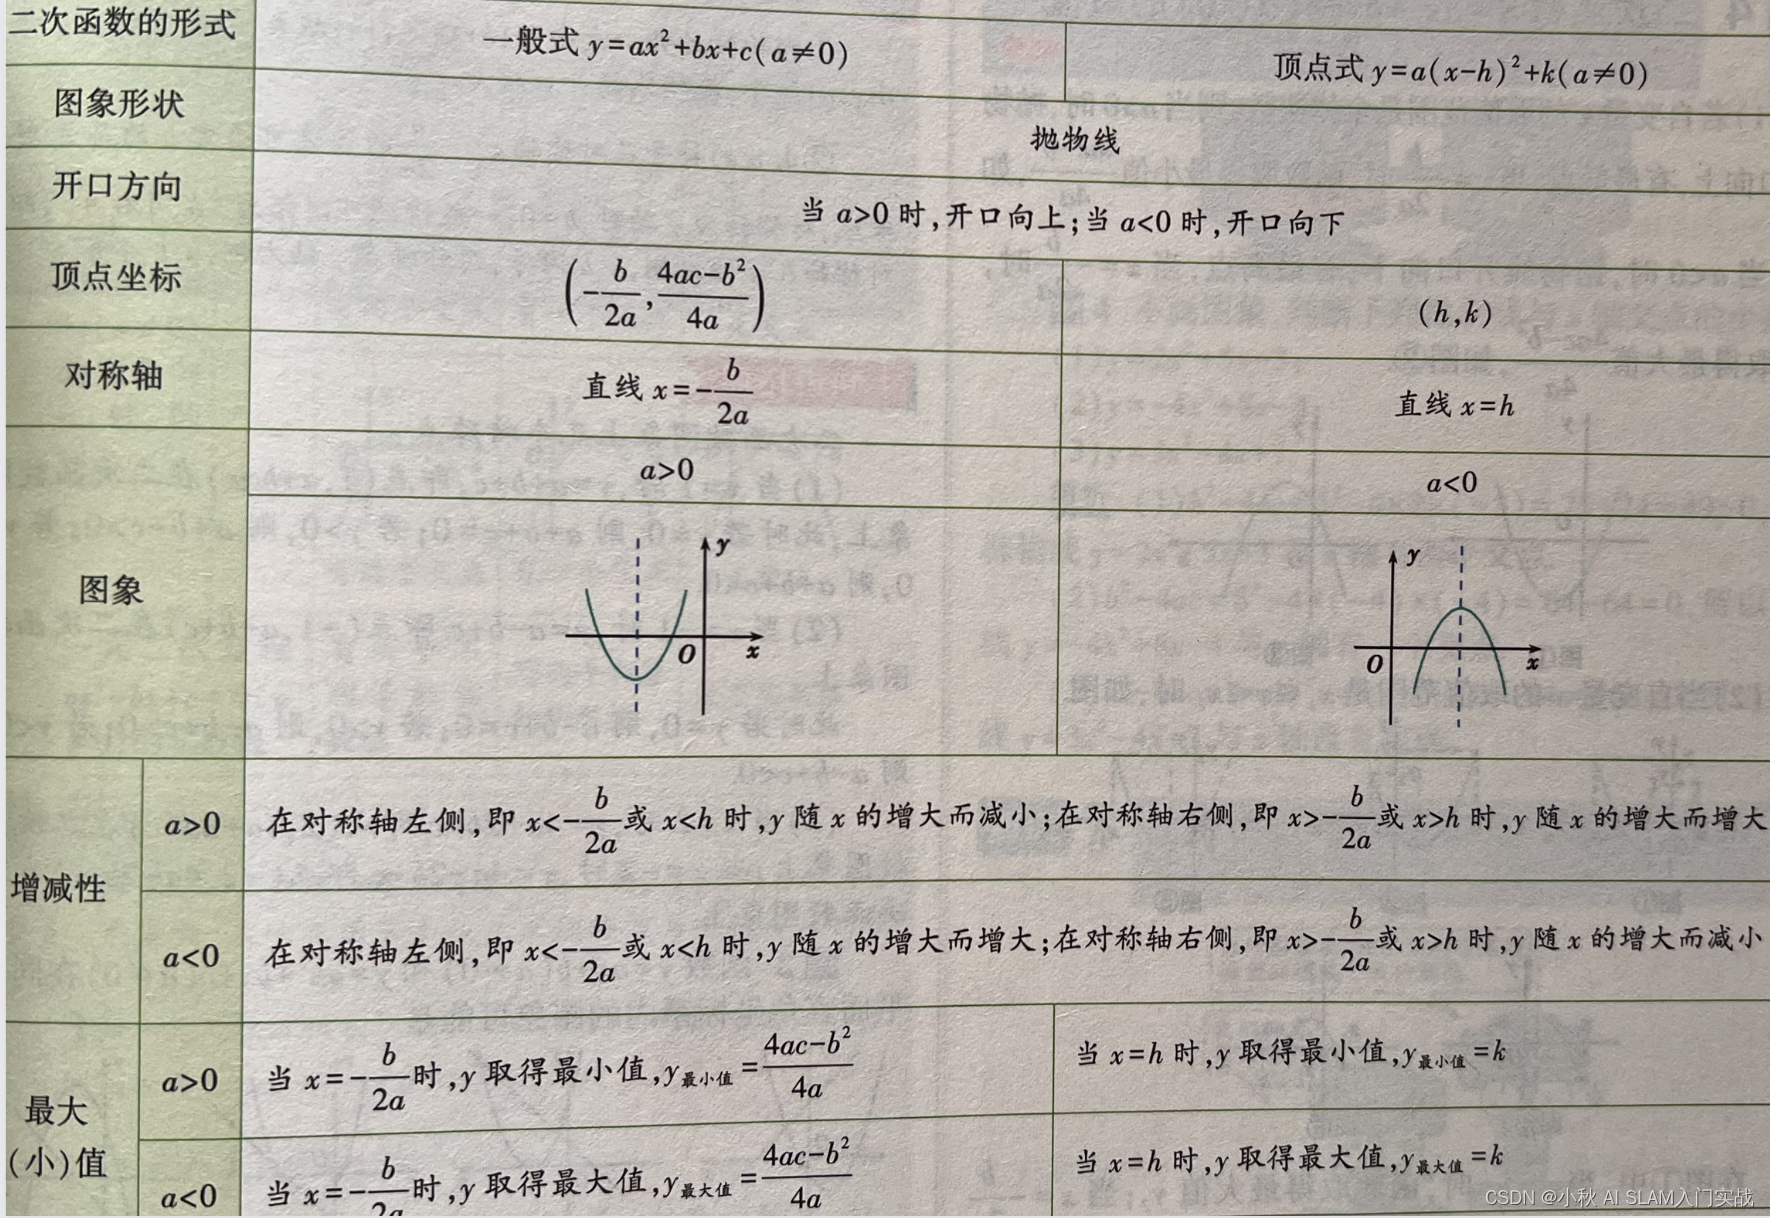 二次函数的形式 一般式 y=ax²+bx+c(a≠0) 顶点式 y=a(x-h)²+k(a≠0)
图象形状 抛物线
开口方向 当 a>0 时,开口向上;当 a<0 时,开口向下
顶点坐标 (-b/2a, (4ac-b²)/4a) (h,k)
对称轴 直线 x=-b/2a 直线 x=h
a>0 a<0
图象
y O x
y O x
增减性
a>0 在对称轴左侧,即 x<-b/2a 或 x<h 时,y 随 x 的增大而减小;在对称轴右侧,即 x>-b/2a 或 x>h 时,y 随 x 的增大而增大
a<0 在对称轴左侧,即 x<-b/2a 或 x<h 时,y 随 x 的增大而增大;在对称轴右侧,即 x>-b/2a 或 x>h 时,y 随 x 的增大而减小
最大
(小)值
a>0 当 x=-b/2a 时,y 取得最小值,y最小值=(4ac-b²)/4a 当 x=h 时,y 取得最小值,y最小值=k
a<0 当 x=-b/2a 时,y 取得最大值,y最大值=(4ac-b²)/4a 当 x=h 时,y 取得最大值,y最大值=k
CSDN @小秋 AI SLAM入门实战